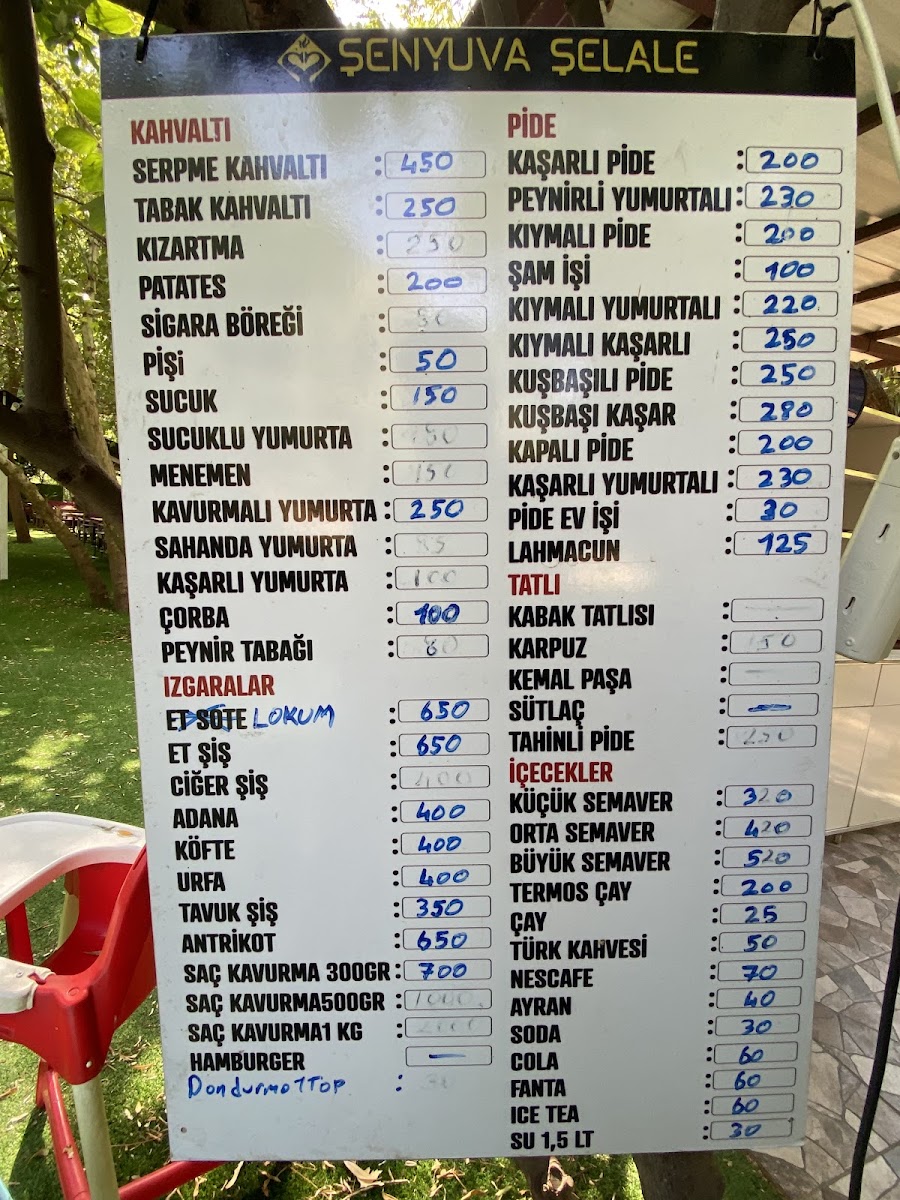 ŞENYUVA ŞELALE
KAHVALTI
SERPME KAHVALTI : 450
TABAK KAHVALTI : 250
KIZARTMA : 250
PATATES : 200
SİGARA BÖREĞİ :
PİŞİ : 50
SUCUK : 150
SUCUKLU YUMURTA : 150
MENEMEN : 150
KAVURMALI YUMURTA : 250
SAHANDA YUMURTA :
KAŞARLI YUMURTA : 100
ÇORBA : 100
PEYNİR TABAĞI :
IZGARALAR
ET SOTE LOKUM : 650
ET ŞİŞ : 650
CİĞER ŞİŞ : 400
ADANA : 400
KÖFTE : 400
URFA : 400
TAVUK ŞİŞ : 350
ANTRİKOT : 650
SAÇ KAVURMA 300GR : 700
SAÇ KAVURMA500GR : 1000
SAÇ KAVURMA1 KG : 2000
HAMBURGER —
Dondurma 1 Top : 30
PİDE
KAŞARLI PİDE : 200
PEYNİRLİ YUMURTALI : 230
KIYMALI PİDE : 200
ŞAM İŞİ : 100
KIYMALI YUMURTALI : 220
KIYMALI KAŞARLI : 250
KUŞBAŞILI PİDE : 250
KUŞBAŞI KAŞAR : 280
KAPALI PİDE : 200
KAŞARLI YUMURTALI : 230
PİDE EV İŞİ : 30
LAHMACUN : 125
TATLI
KABAK TATLISI : —
KARPUZ : 150
KEMAL PAŞA : —
SÜTLAÇ : —
TAHİNLİ PİDE : 250
İÇECEKLER
KÜÇÜK SEMAVER : 320
ORTA SEMAVER : 420
BÜYÜK SEMAVER : 520
TERMOS ÇAY : 200
ÇAY : 25
TÜRK KAHVESİ : 50
NESCAFE : 70
AYRAN : 40
SODA : 30
COLA : 60
FANTA : 60
ICE TEA : 60
SU 1,5 LT : 30